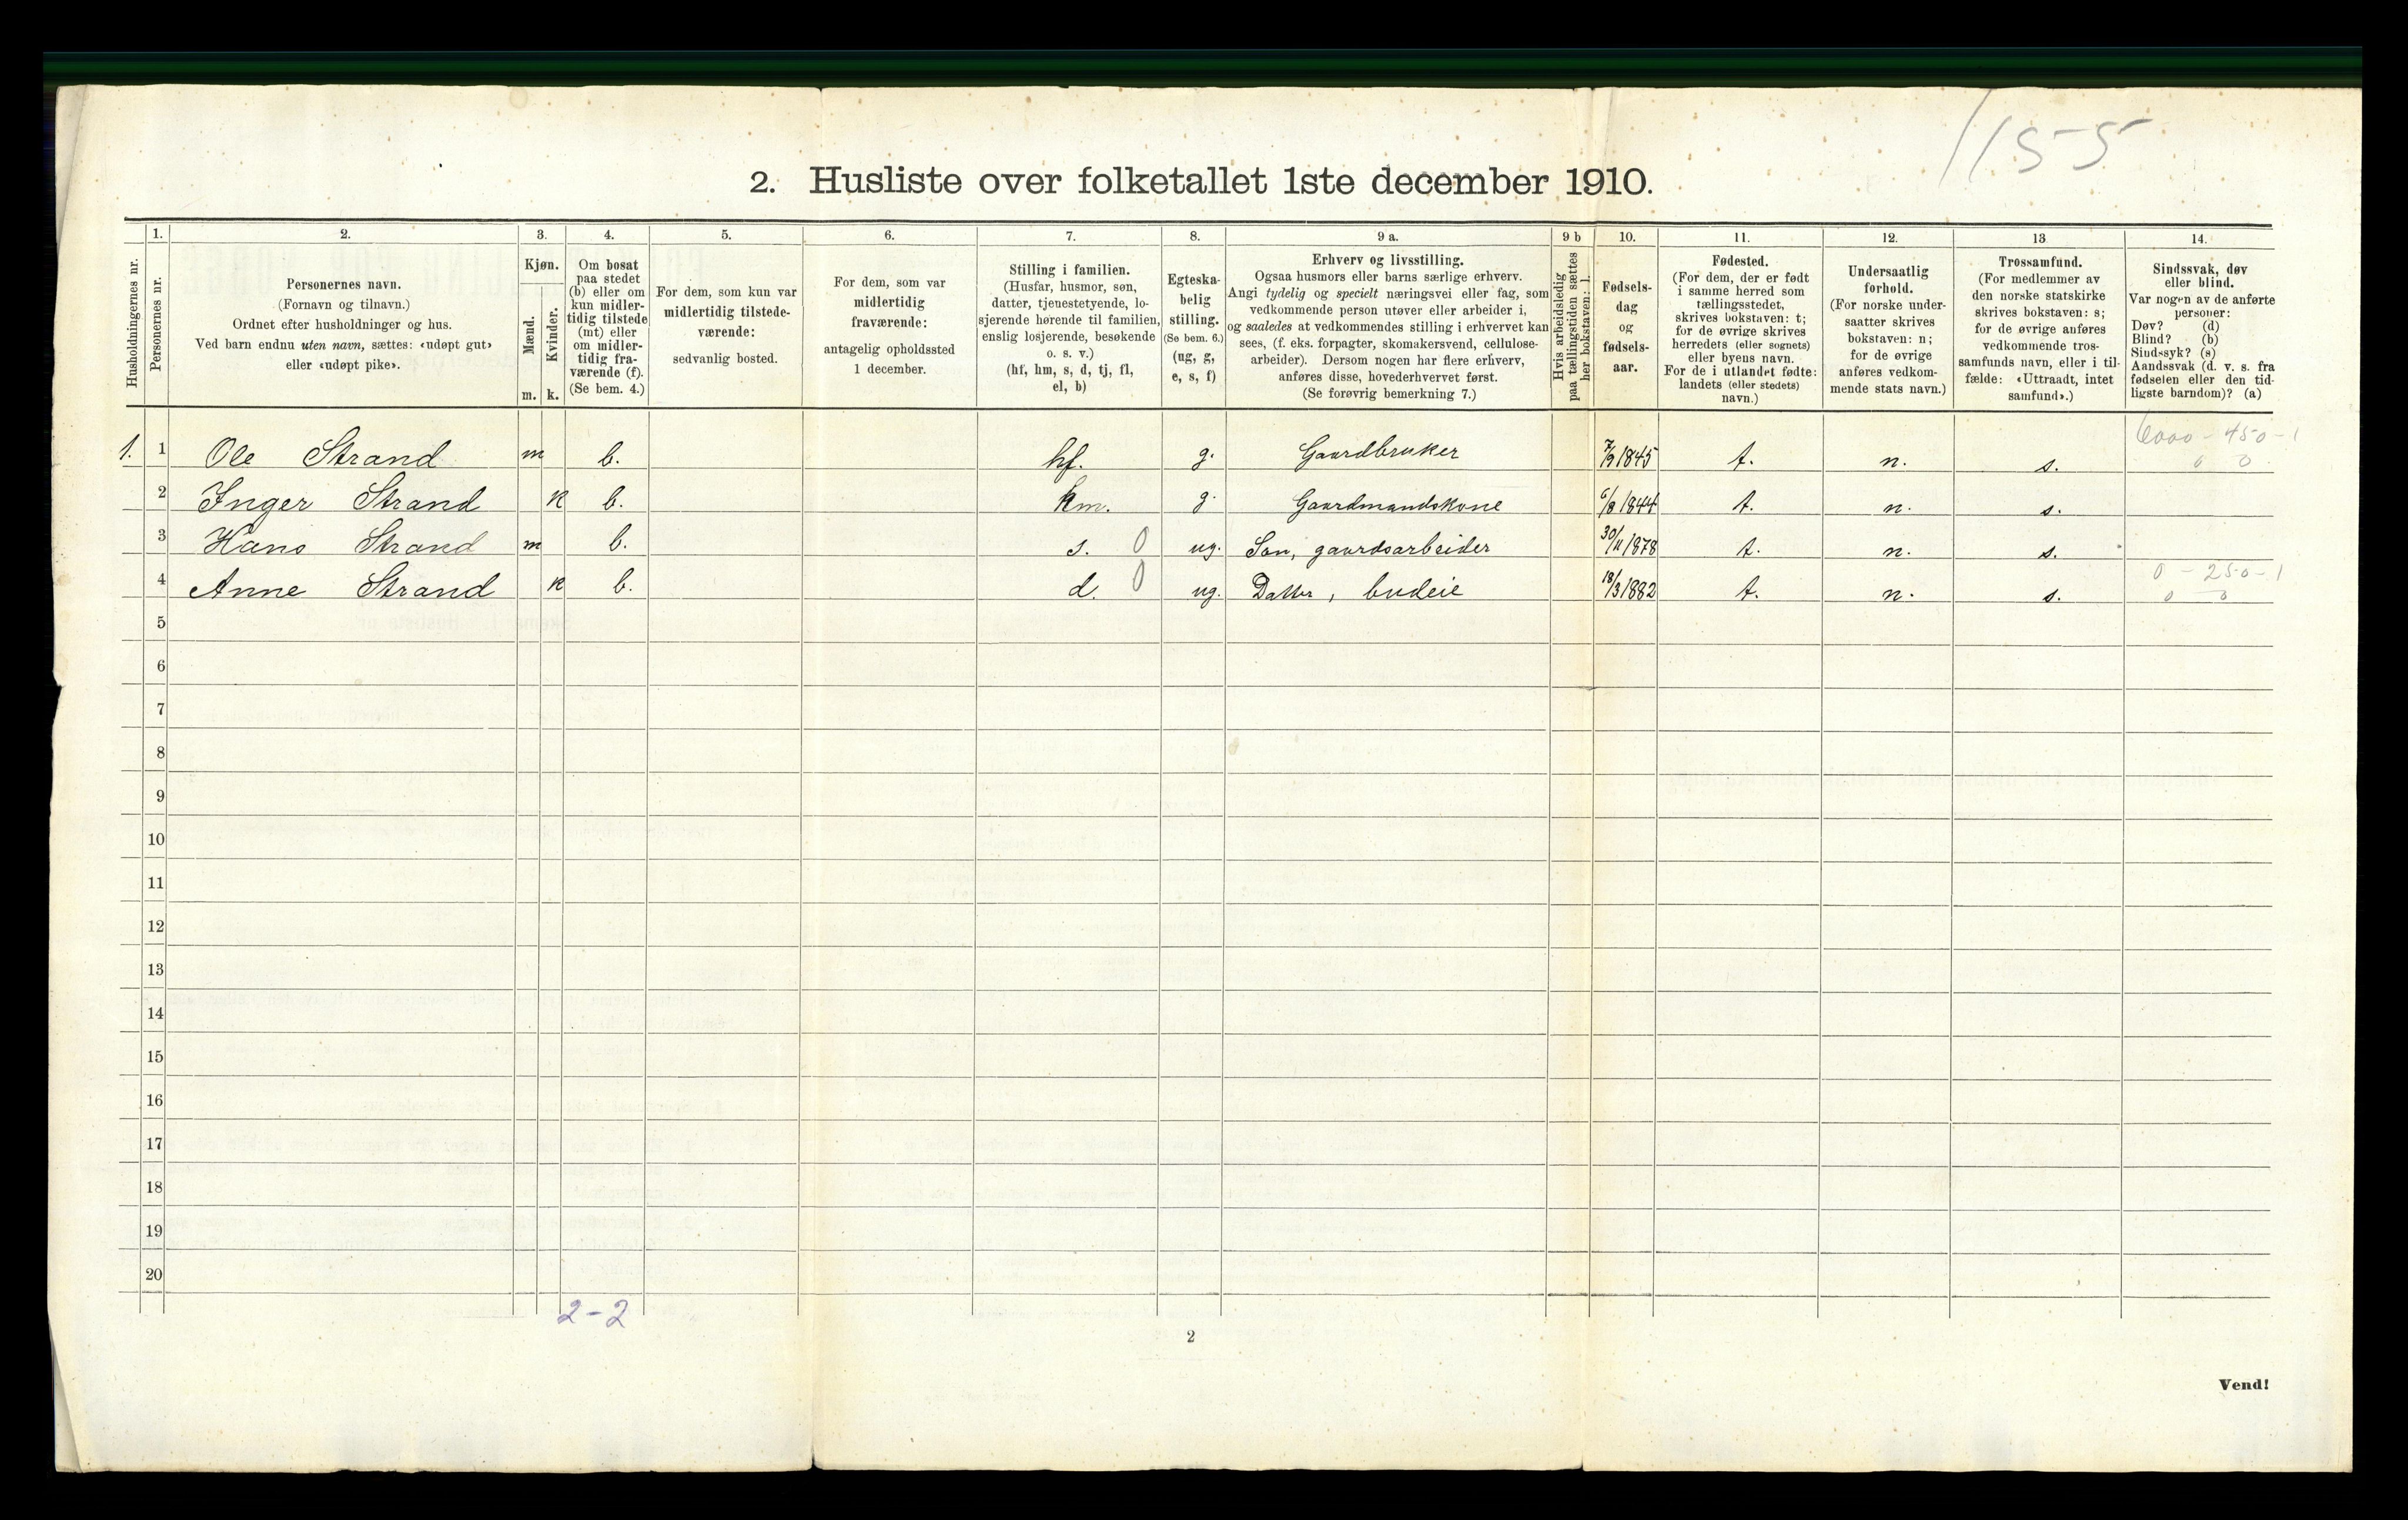 1155
2. Husliste over folketallet 1ste december 1910.
Husholdningernes nr.
1.
Personernes nr.
2.
Personernes navn.
(Fornavn og tilnavn.)
Ordnet efter husholdninger og hus.
Ved barn endnu uten navn, sættes: «udøpt gut»
eller «udøpt pike».
3.
Kjøn.
Mænd.
Kvinder.
m. k.
4.
Om bosat
paa stedet
(b) eller om
kun midler-
tidig tilstede
(mt) eller
om midler-
tidig fra-
værende (f).
(Se bem. 4.)
5.
For dem, som kun var
midlertidig tilstede-
værende:
sedvanlig bosted.
6.
For dem, som var
midlertidig
fraværende:
antagelig opholdssted
1 december.
7.
Stilling i familien.
(Husfar, husmor, søn,
datter, tjenestetyende, lo-
sjerende hørende til familien,
enslig losjerende, besøkende
o. s. v.)
(hf, hm, s, d, tj, fl,
el, b)
8.
Egteska-
belig
stilling.
(Se bem. 6.)
(ug, g,
e, s, f)
9 a.
Erhverv og livsstilling.
Ogsaa husmors eller barns særlige erhverv.
Angi tydelig og specielt næringsvei eller fag, som
vedkommende person utøver eller arbeider i,
og saaledes at vedkommendes stilling i erhvervet kan
sees, (f. eks. forpagter, skomakersvend, cellulose-
arbeider). Dersom nogen har flere erhverv,
anføres disse, hovederhvervet først.
(Se forøvrig bemerkning 7.)
9 b
Hvis arbeidsledig
paa tællingstiden sættes
her bokstaven: l.
10.
Fødsels-
dag
og
fødsels-
aar.
11.
Fødested.
(For dem, der er født
i samme herred som
tællingsstedet,
skrives bokstaven: t;
for de øvrige skrives
herredets (eller sognets)
eller byens navn.
For de i utlandet fødte:
landets (eller stedets)
navn.)
12.
Undersaatlig
forhold.
(For norske under-
saatter skrives
bokstaven: n;
for de øvrige
anføres vedkom-
mende stats navn.)
13
Trossamfund.
(For medlemmer av
den norske statskirke
skrives bokstaven: s;
for de øvrige anføres
vedkommende tros-
samfunds navn, eller i til-
fælde: «Uttraadt, intet
samfund».)
14.
Sindssvak, døv
eller blind.
Var nogen av de anførte
personer:
Døv? (d)
Blind? (b)
Sindssyk? (s)
Aandssvak (d. v. s. fra
fødselen eller den tid-
ligste barndom)? (a)
6000 - 450 - 1
0 0
1. 1 Ole Strand m b. hf. g. Gaardbruker 7/9 1845 t. n. s.
2 Inger Strand k b. hm. g. Gaardmandskone 6/8 1844 t. n. s.
3 Hans Strand m b. s. 0 ug. Søn, gaardsarbeider 30/11 1878 t. n. s.
0 - 250 - 1
0 0
4 Anne Strand k b. d. 0 ug. Datter, budeie 18/3 1882 t. n. s.
5
6
7
8
9
10
11
12
13
14
15
16
17
18
19
20
2-2
2
Vend!